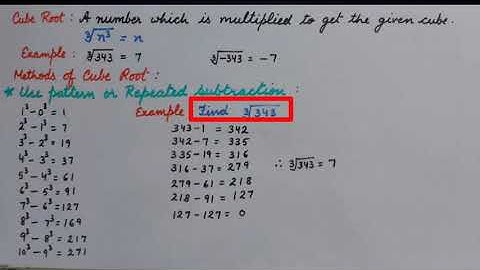 Cube Root : A number which is multiplied to get the given cube.
∛n³ = n
Example : ∛343 = 7 ∛-343 = -7
Methods of Cube Root :
* Use pattern or Repeated subtraction :
Example : Find ∛343
1³ - 0³ = 1
2³ - 1³ = 7
3³ - 2³ = 19
4³ - 3³ = 37
5³ - 4³ = 61
6³ - 5³ = 91
7³ - 6³ = 127
8³ - 7³ = 169
9³ - 8³ = 217
10³ - 9³ = 271
343 - 1 = 342
342 - 7 = 335
335 - 19 = 316
316 - 37 = 279
279 - 61 = 218
218 - 91 = 127
127 - 127 = 0
∴ ∛343 = 7